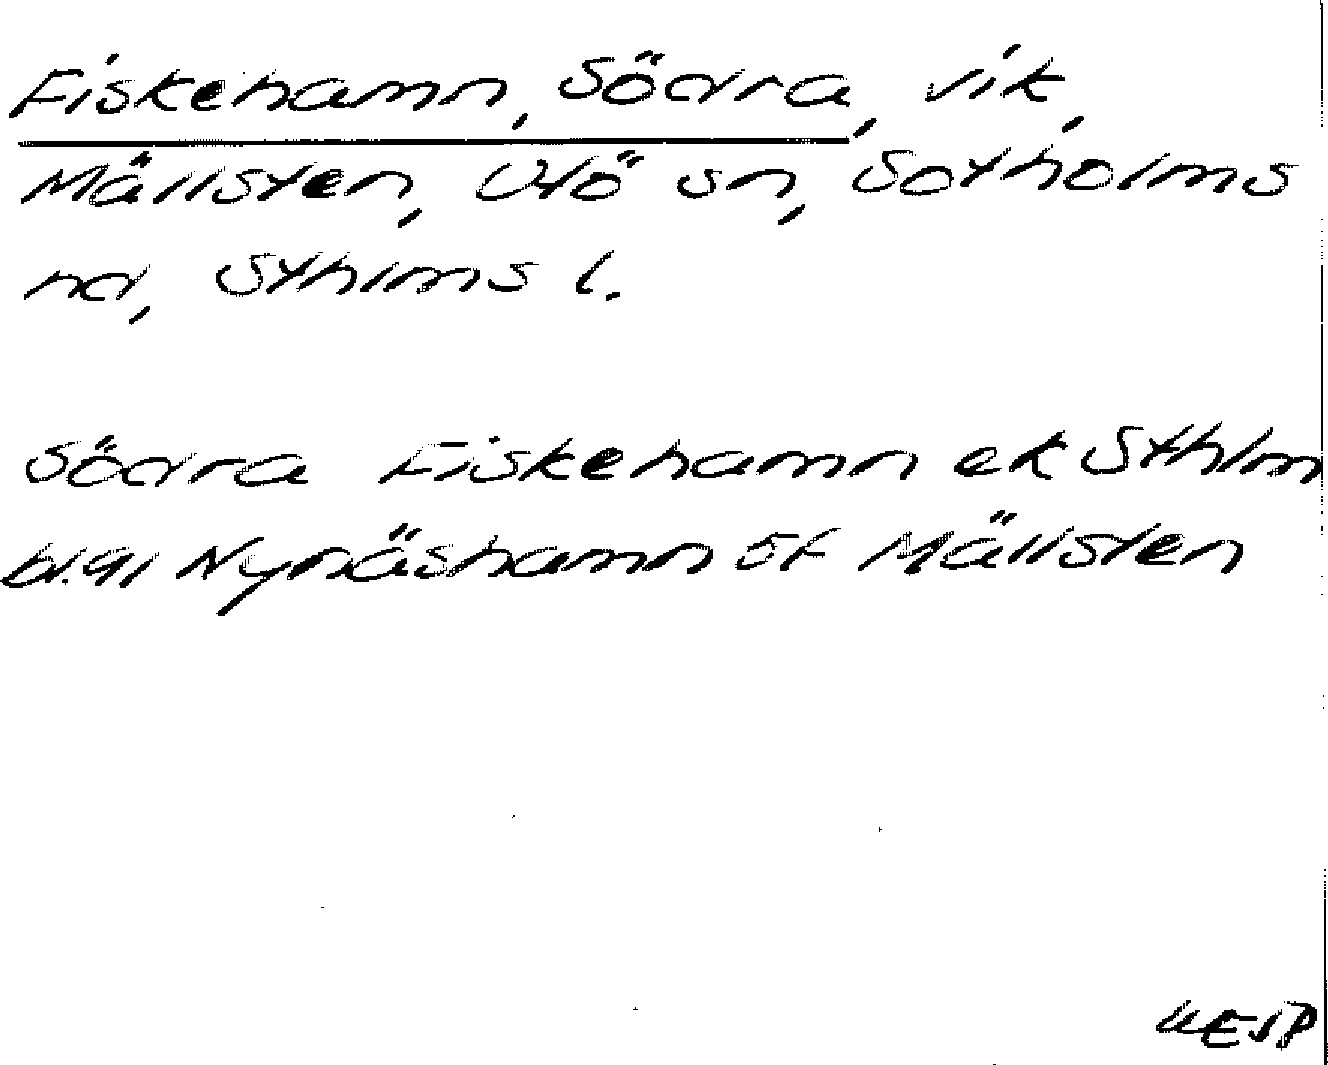 Fiskehamn, Södra, vik,
Mällsten, Utö sn, Sotholms
hd, Sthlms l.
Södra Fiskehamn ek Sthlm
bl. 91 Nynäshamn SF Mällsten